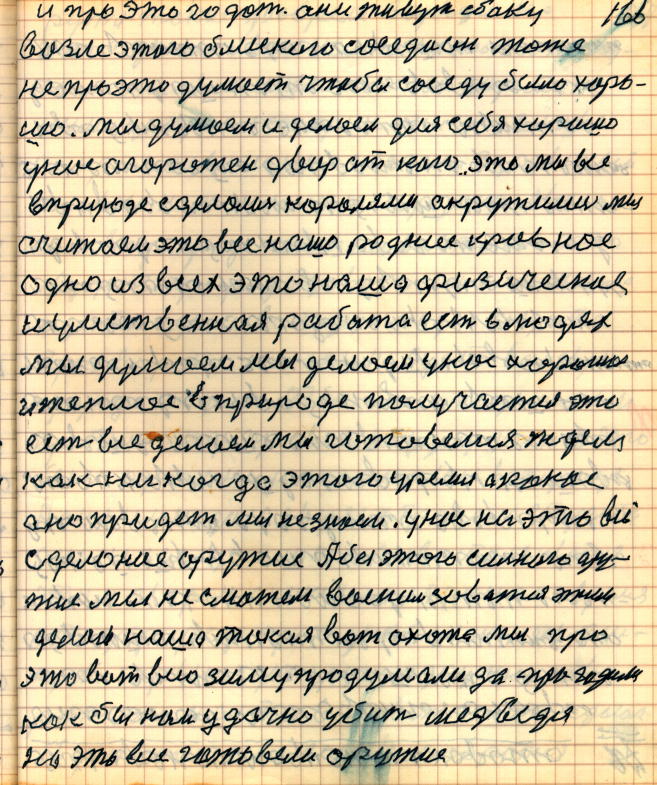 и про это годят. ани живут сбоку 166
возле этого блиского соседа он тоже
не про это думает чтобы соседу было хоро-
шо. мы думаем и делаем для себя хорошо
унас агорожен двор от кого. это мы все
в природе сделали королями акружили мы
считаем это все нашо родные кровное
одно из всех это наша физическая
иумственная работа ест в людях
мы думаем мы делаем унас хорошо
и теплое в природе получается это
ест все делаем мы готовелися ждем
как никогда этого уремя а какое
ано придет мы незнаем. унас на это всё
сделоное аружие Абы этого силного
жие мы не сможем воспользоватся этим
делом наша такая вот охота мы про
это вот всю зиму продумали за
как бы нам удачно убит медведя
на это все готовели оружие